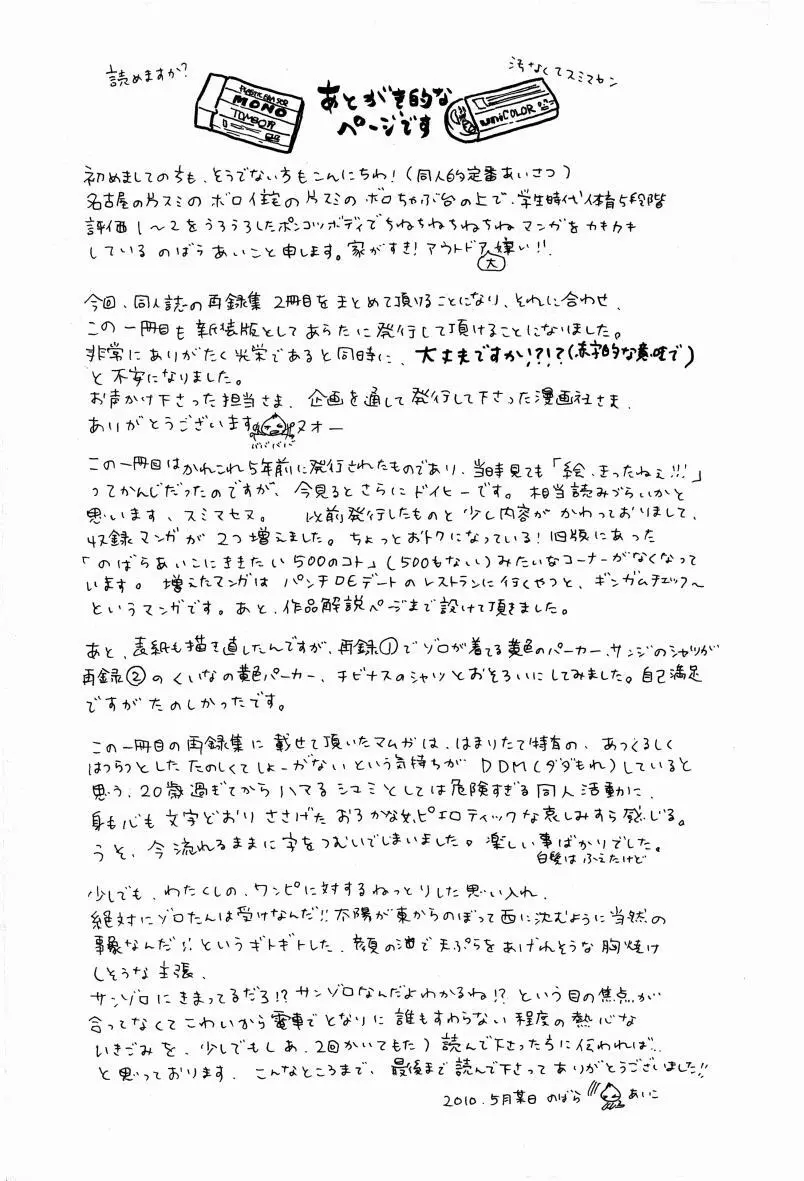 読めますか?
汚なくてスミマセン
PLASTIC ERASER
MONO
TOMBOW
あとがき的な
ページです
uni COLOR
初めましての方も、そうでない方もこんにちわ!(同人的定番あいさつ)
名古屋の片スミの ボロ住宅の片スミの ボロちゃぶ台の上で、学生時代体育5段階
評価1〜2をうろうろしたポンコツボディでちねちねちねちね マンガをカキカキ
している のばらあいこと申します。家がすき!アウトドア大嫌い!!
今回、同人誌の再録集 2冊目をまとめて頂けることになり、それに合わせ、
この一冊目も新装版としてあらたに発行して頂けることにないました。
非常にありがたく光栄であると同時に、大丈夫ですか!?!?(赤字的な意味で)
と不安になりました。
お声かけ下さった担当さま、企画を通して発行して下さった漫画社さま、
ありがとうございます ヌオー
この一冊目はかれこれ5年前に発行されたものであり、当時見ても「絵、きったねえ!!!」
ってかんじだったのですが、今見るとさらにドイヒーです。相当読みづらいかと
思います、スミマセヌ。 以前発行したものと少し内容が かわっておりまして、
収録マンガが2つ増えました。ちょっとおトクになっている!旧版にあった
「のばらあいこにききたい500のコト」(500もない)みたいなコーナーがなくなって
います。 増えたマンガは パンチDEデートのレストランに行くやつと、ギンガムチェック〜
というマンガです。あと、作品解説ページまで設けて頂きました。
あと、表紙も描き直したんですが、再録①でゾロが着てる黄色のパーカー、サンジのシャツが
再録②のくいなの黄色パーカー、チビナスのシャツとおそろいにしてみました。自己満足
ですが たのしかったです。
この一冊目の再録集に載せて頂いたマムガは、はまりたて特有の、あつくるしく
はつらつとした たのしくてしょーがないという気持ちが DDM(ダダもれ)していると
思う、20歳過ぎてからハマるシュミとしては危険すぎる同人活動に、
身も心も文字どおり ささげた おろかな女、ピエロティックな哀しみすら感じる。
うそ、今流れるままに字をつむいでしまいました。楽しい事ばかりでした。
白髪は ふえたけど
少しでも、わたくしの、ワンピに対するねっとりした思い入れ、
絶対にゾロたんは受けなんだ!!太陽が東からのぼって西に沈むように当然の
事象なんだ!!というギトギトした、顔の油で天ぷらをあげれそうな胸焼け
しそうな主張、
サンゾロにきまってるだろ!?サンゾロなんだよわかるね!?という目の焦点が
合ってなくてこわいから電車でとなりに誰もすわらない程度の熱心な
いきごみを、少しでも(あ、2回かいてもた)読んで下さった方に伝われば…
と思っております、こんなところまで、最後まで読んで下さってありがとうございました!!
2010.5月某日 のばら あいこ